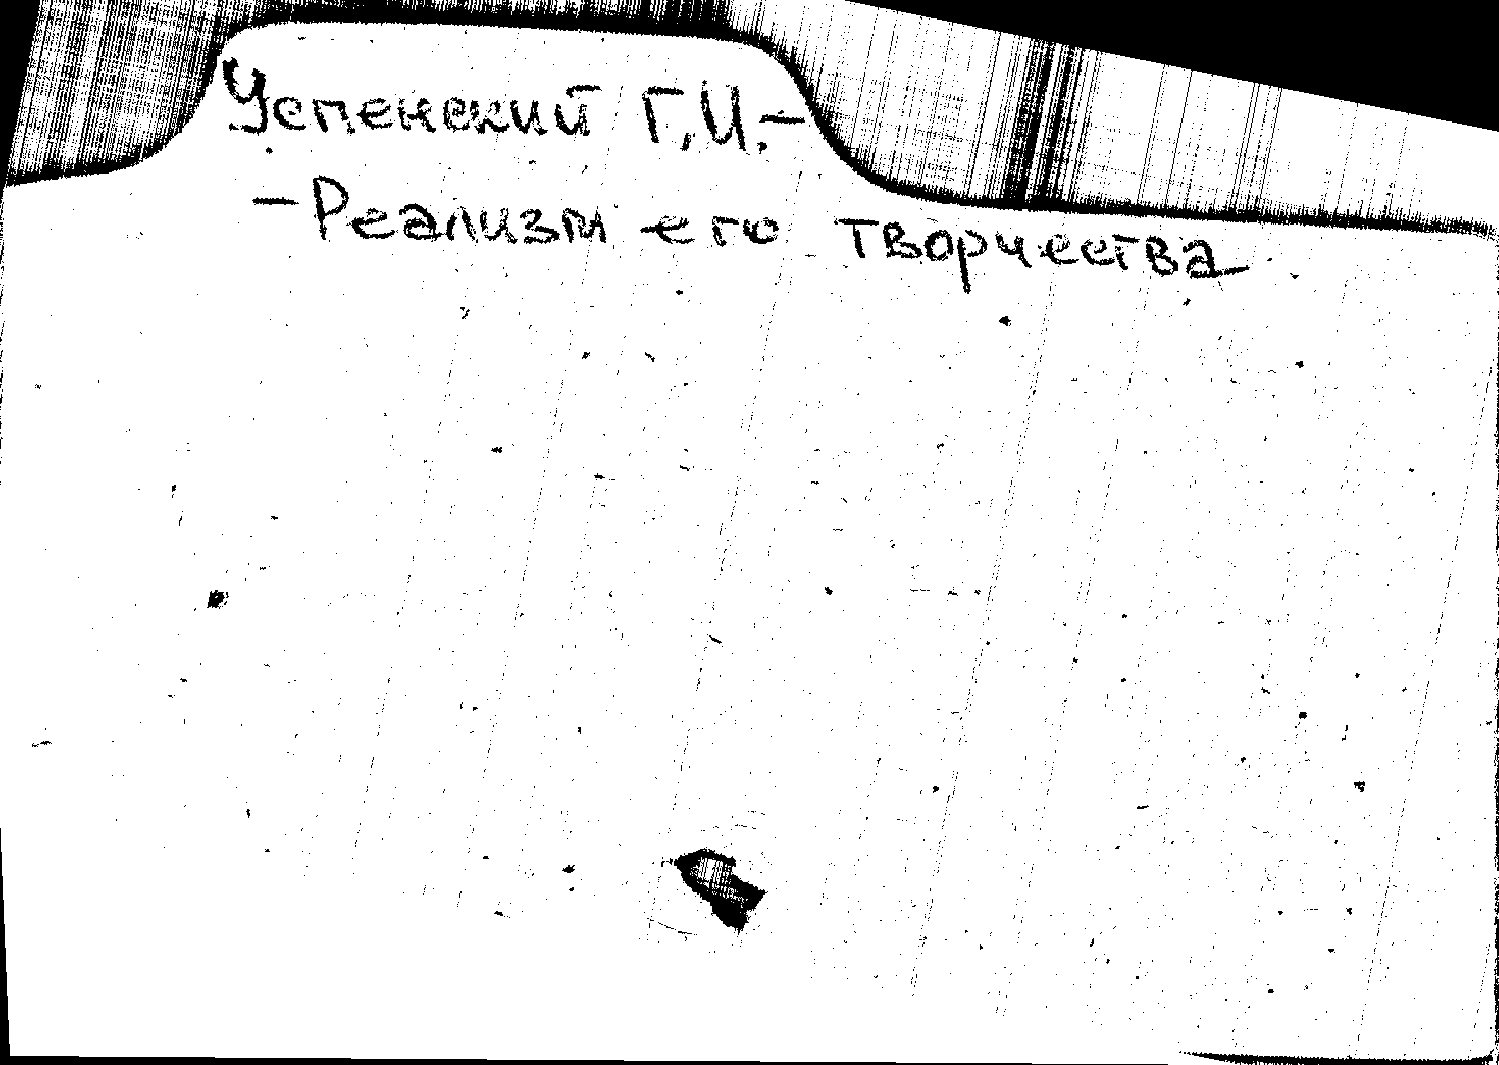 Успенский Г.И.—
—Реализм его творчества